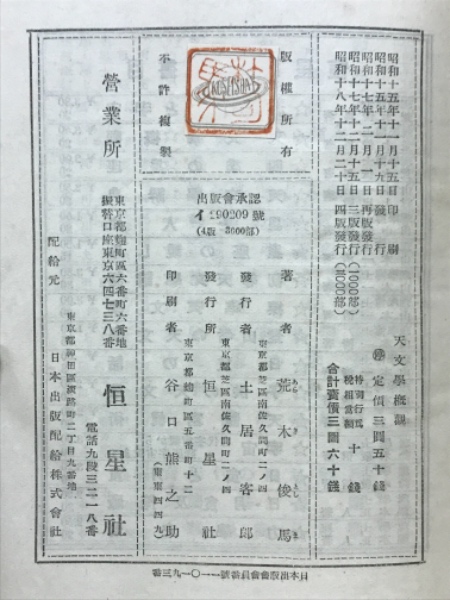 天文學概觀
㊞ 定價三圓五十錢
特別行爲税相當額 十錢
合計賣價三圓六十錢
昭和十五年十一月十五日印刷
昭和十五年十一月十九日發行
昭和十七年二月一日再版發行
昭和十七年十二月十五日三版發行(1000部)
昭和十八年十二月二十日四版發行(3000部)
版權所有
不許複製
KOSEISHA
出版會承認
イ290209號
(4版 3000部)
著者 荒木俊馬
東京都芝區南佐久間町二ノ四
發行者 土居客郎
東京都芝區南佐久間町二ノ四
發行所 恒星社
東京都麴町區五番町十二
印刷者 谷口熊之助
(東東四四九)
營業所
東京都麴町區六番町六番地
振替口座東京六四七三八番
恒星社
電話九段三二一八番
配給元
東京都神田區淡路町二丁目九番地
日本出版配給株式會社
日本出版會會員番號一一〇一九三番